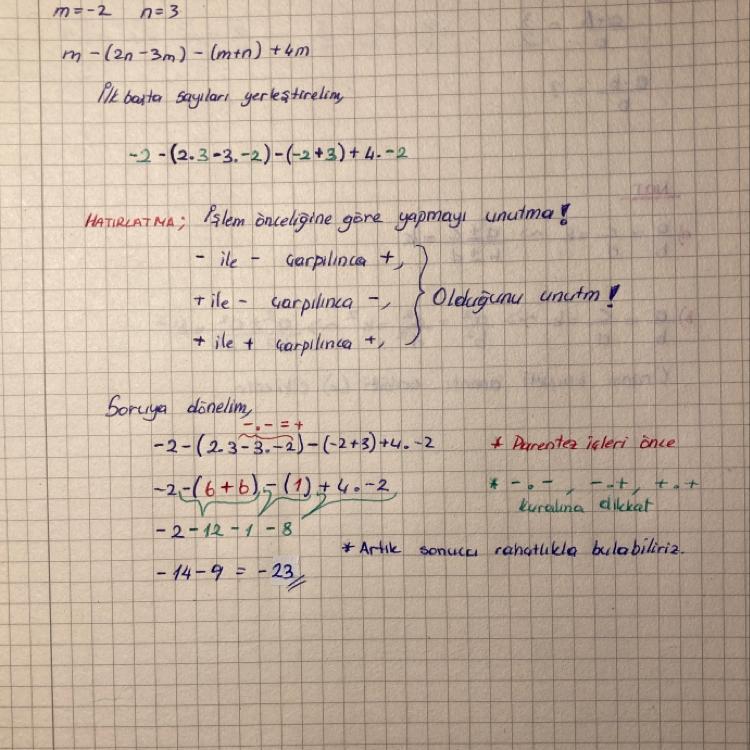 m=-2 n=3
m -(2n-3m) - (m+n) +4m
İlk başta sayıları yerleştirelim,
-2 -(2.3-3.-2)-(-2+3)+4.-2
HATIRLATMA; İşlem önceliğine göre yapmayı unutma!
- ile - çarpılınca +,
+ ile - çarpılınca -,
Olduğunu unutm!
+ ile + çarpılınca +,
Soruya dönelim,
-.- = +
-2-(2.3-3.-2)-(-2+3)+4.-2 * Parentez içleri önce
-2-(6+6)-(1)+4.-2 * -.-, -.+, +.+
kuralına dikkat
-2-12-1-8
* Artık sonucu rahatlıkla bulabiliriz.
-14-9 = -23